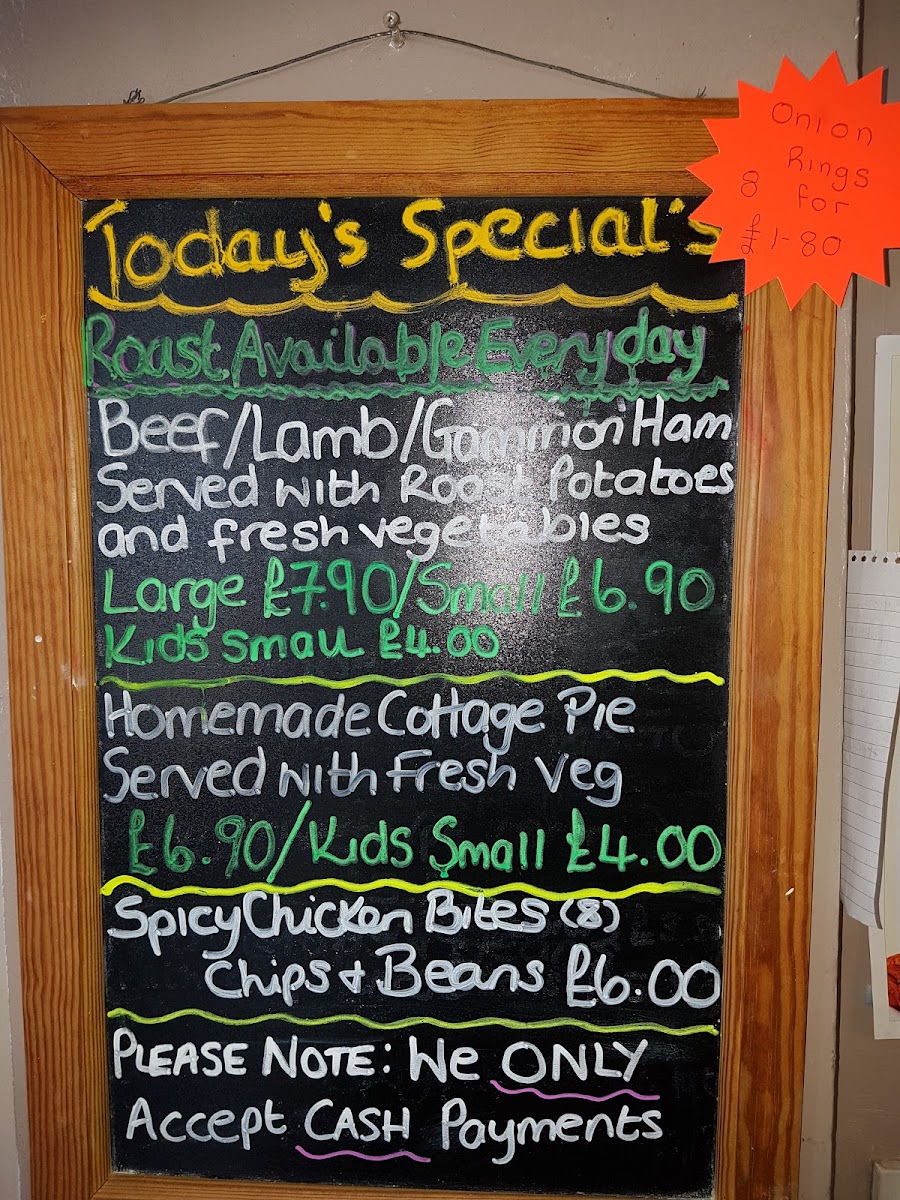 Onion
Rings
8 for
£1-80
Today's Special's
Roast Available Everyday
Beef/Lamb/Gammon Ham
Served with Roast Potatoes
and fresh vegetables
Large £7.90/Small £6.90
Kids small £4.00
Homemade Cottage Pie
Served with Fresh Veg
£6.90/Kids Small £4.00
Spicy Chicken Bites (8)
Chips + Beans £6.00
PLEASE NOTE: We ONLY
Accept CASH Payments